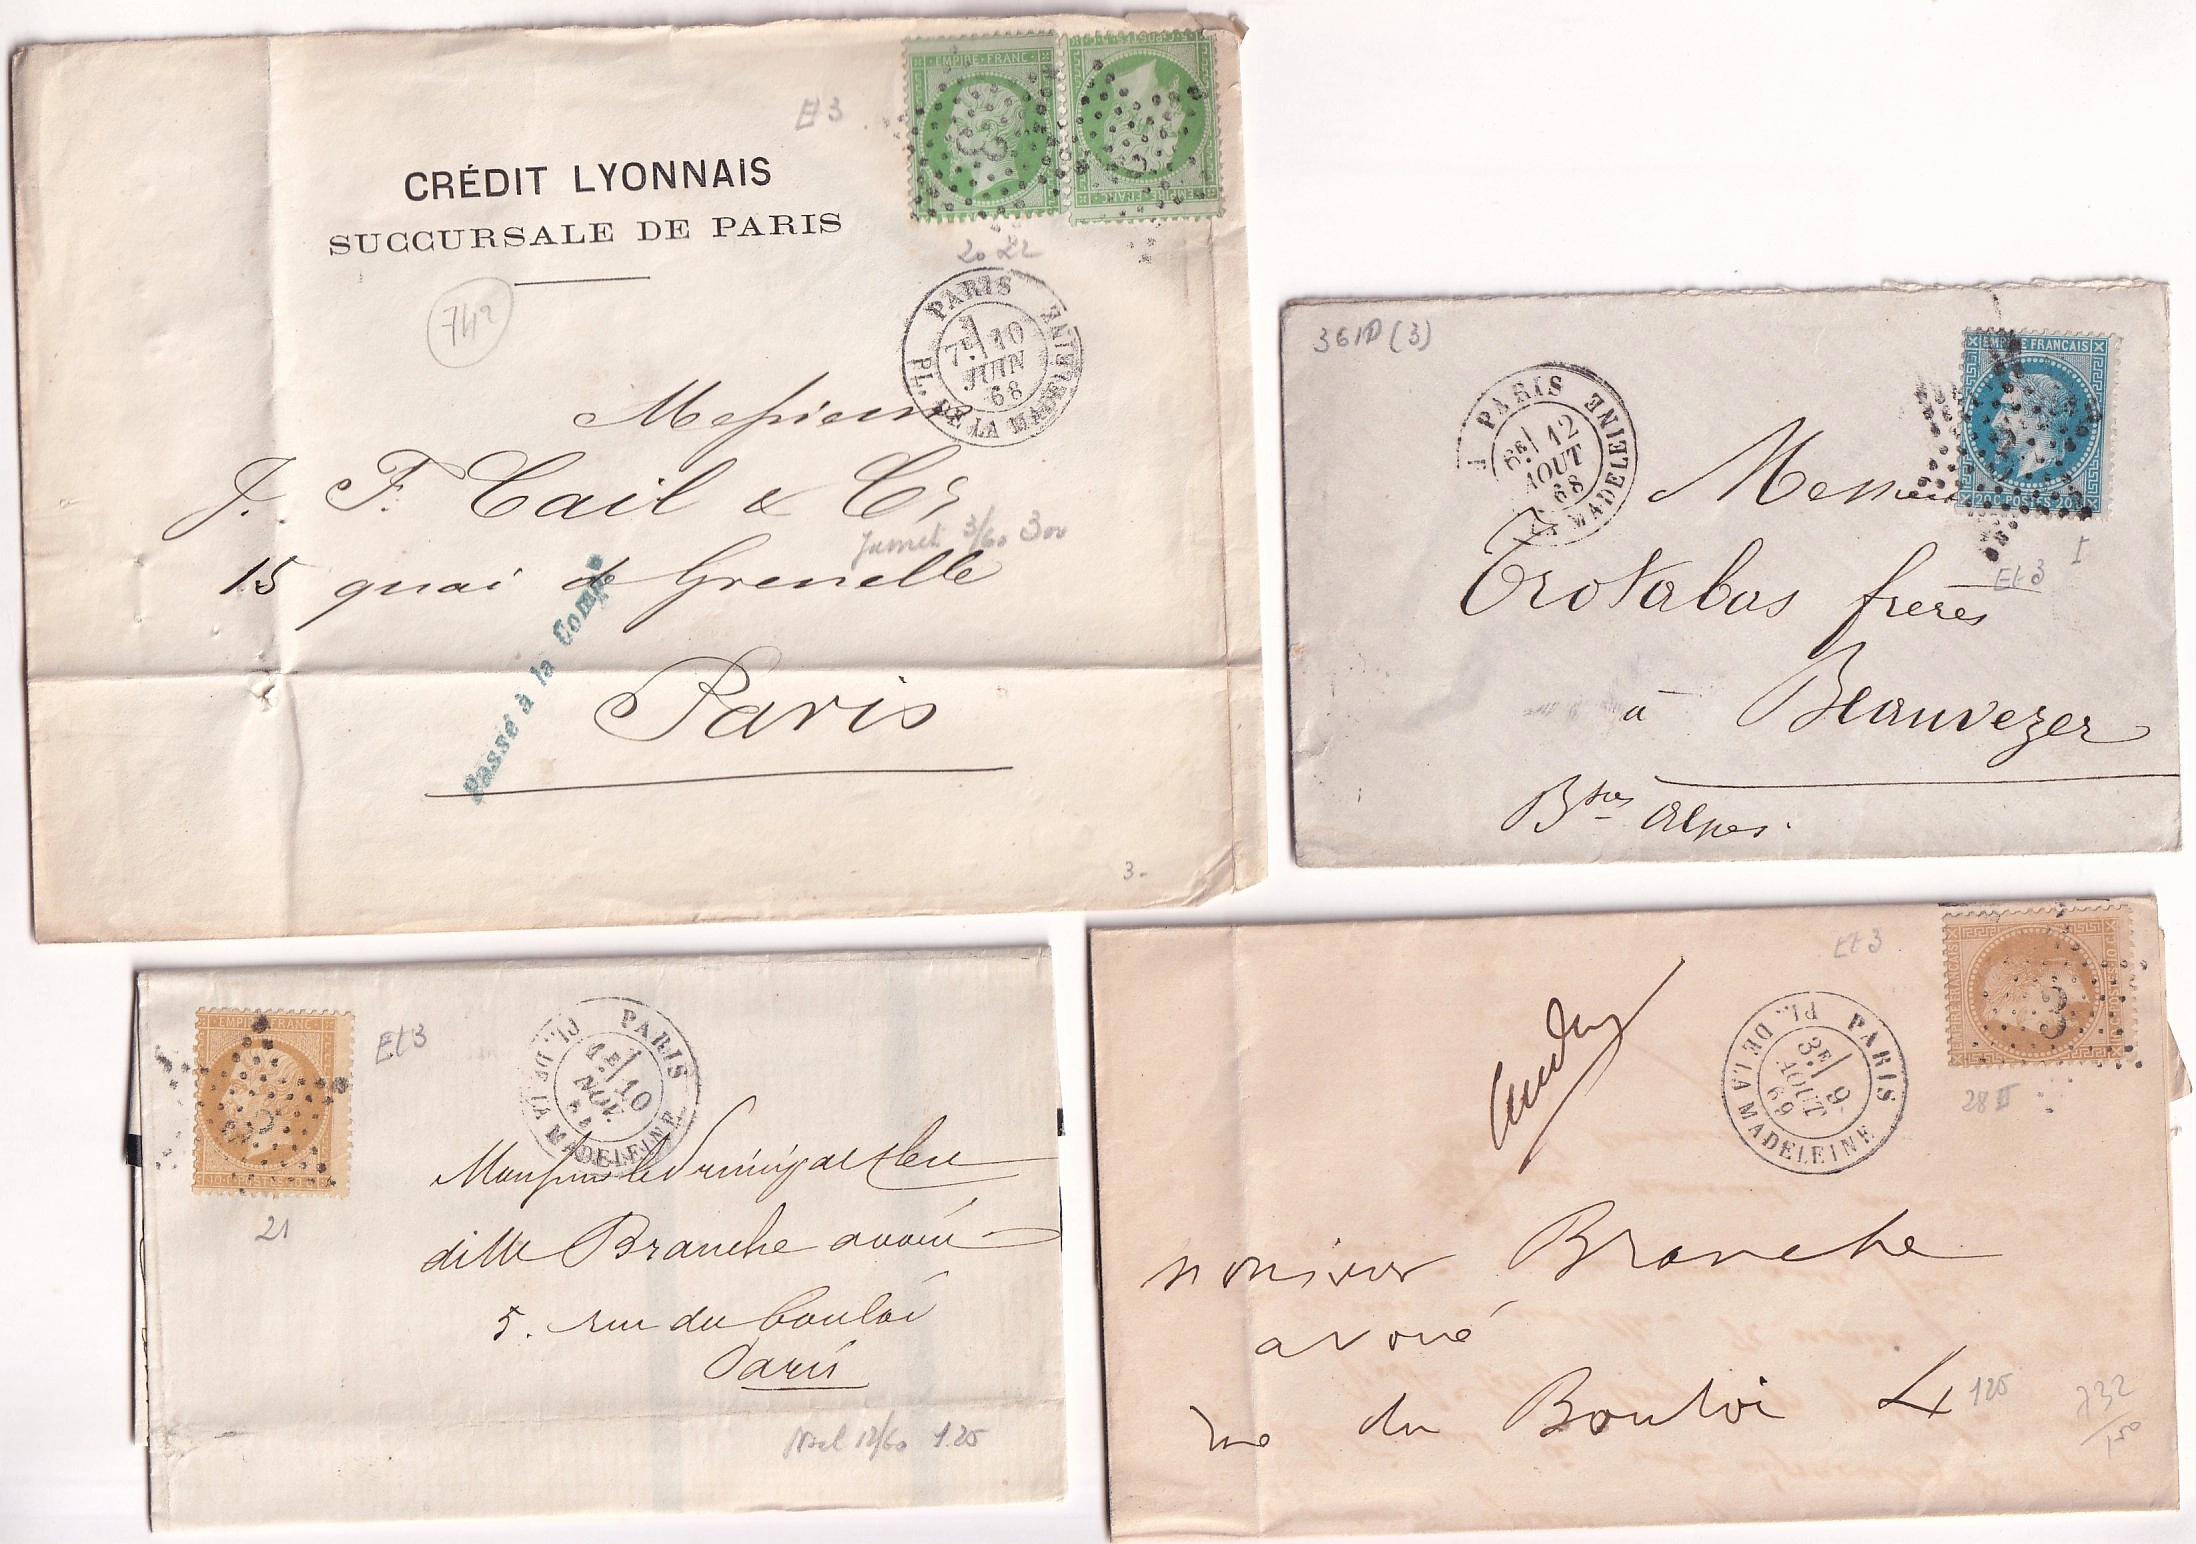 Et 3
EMPIRE · FRANC ·
EMPIRE · FRANC
CRÉDIT LYONNAIS
SUCCURSALE DE PARIS
20
742
PARIS
7E 10
JUIN
68
PL. DE LA MADELEINE
Messieurs
J. F. Cail & Cie
3/60 300
15 quai de Grenelle
Passé à la Compte
Paris
3-
36 (3)
EMPIRE FRANCAIS
20 C POSTES 20 C
PARIS
6E 12
AOUT
68
PL. MADELEINE
Messieurs
I
Et 3
Trotabas frères
à Beauvezer
Bses Alpes.
EMPIRE FRANC
10 C POSTES 10 C
Et 3
21
PARIS
10
NOV.
PL. DE LA MADELEINE
Monsieur le Principal Clerc
Branche avoué
5. rue du Bouloi
Paris
12/60 125
Et 3
EMPIRE FRANCAIS
3
28 II
PARIS
3E 9
AOUT
69
PL. DE LA MADELEINE
monsieur Branche
avoué
rue du Bouloi 4
125
732
150